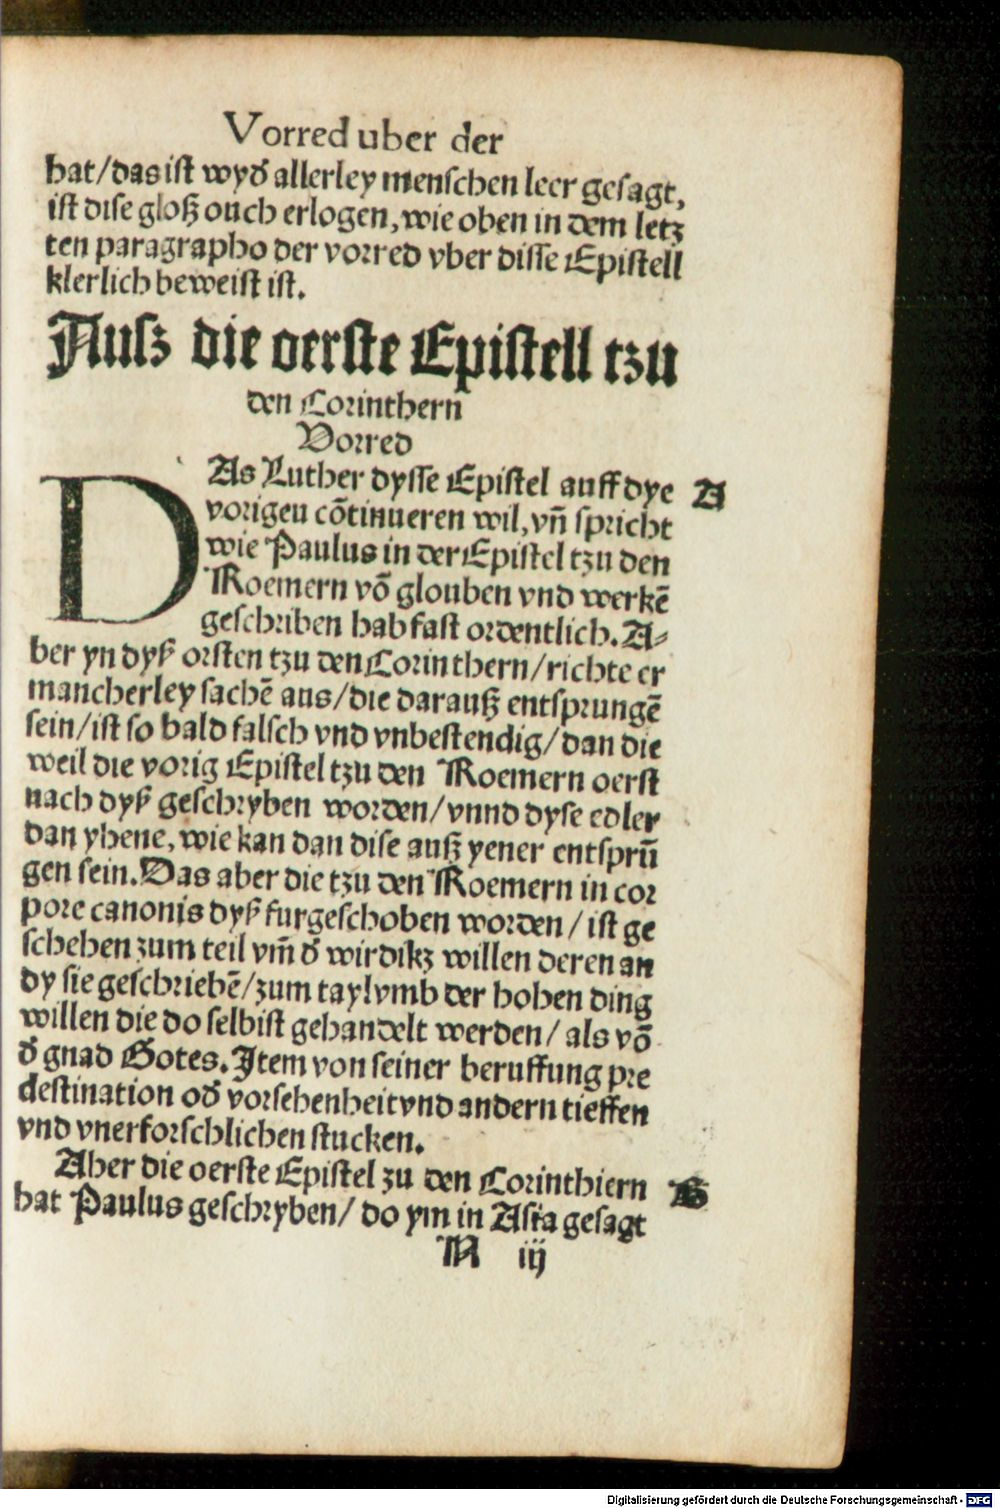 Vorred uber der
hat/das ist wyð allerley menschen leer gesagt,
ist dise gloß ouch erlogen, wie oben in dem letz
ten paragrapho der vorred vber disse Epistell
klerlich beweist ist.
Ausz die oerste Epistell tzu
den Corinthern
Vorred
DAs Luther dysse Epistel auff dye A
vorigeu cõtinueren wil, vñ spricht
wie Paulus in der Epistel tzu den
Roemern võ glouben vnd werkẽ
geschriben hab fast ordentlich. A⸗
ber yn dyß orsten tzu den Corinthern/richte er
mancherley sachẽ aus/die darauß entsprungẽ
sein/ist so bald falsch vnd vnbestendig/dan die
weil die vorig Epistel tzu den Roemern oerst
nach dyß geschryben worden/vnnd dyse edler
dan yhene, wie kan dan dise auß yener entsprũ
gen sein. Das aber die tzu den Roemern in cor
pore canonis dyß furgeschoben worden/ist ge
schehen zum teil vm̃ ð wirdikz willen deren an
dy sie geschriebẽ/zum tayl vmb der hohen ding
willen die do selbist gehandelt werden/als võ
ð gnad Gotes. Item von seiner beruffung pre
destination oð vorsehenheit vnd andern tieffen
vnd vnerforschlichen stucken.
Aber die oerste Epistel zu den Corinthiern B
hat Paulus geschryben/do ym in Asia gesagt
N iij
Digitalisierung gefördert durch die Deutsche Forschungsgemeinschaft - DFG